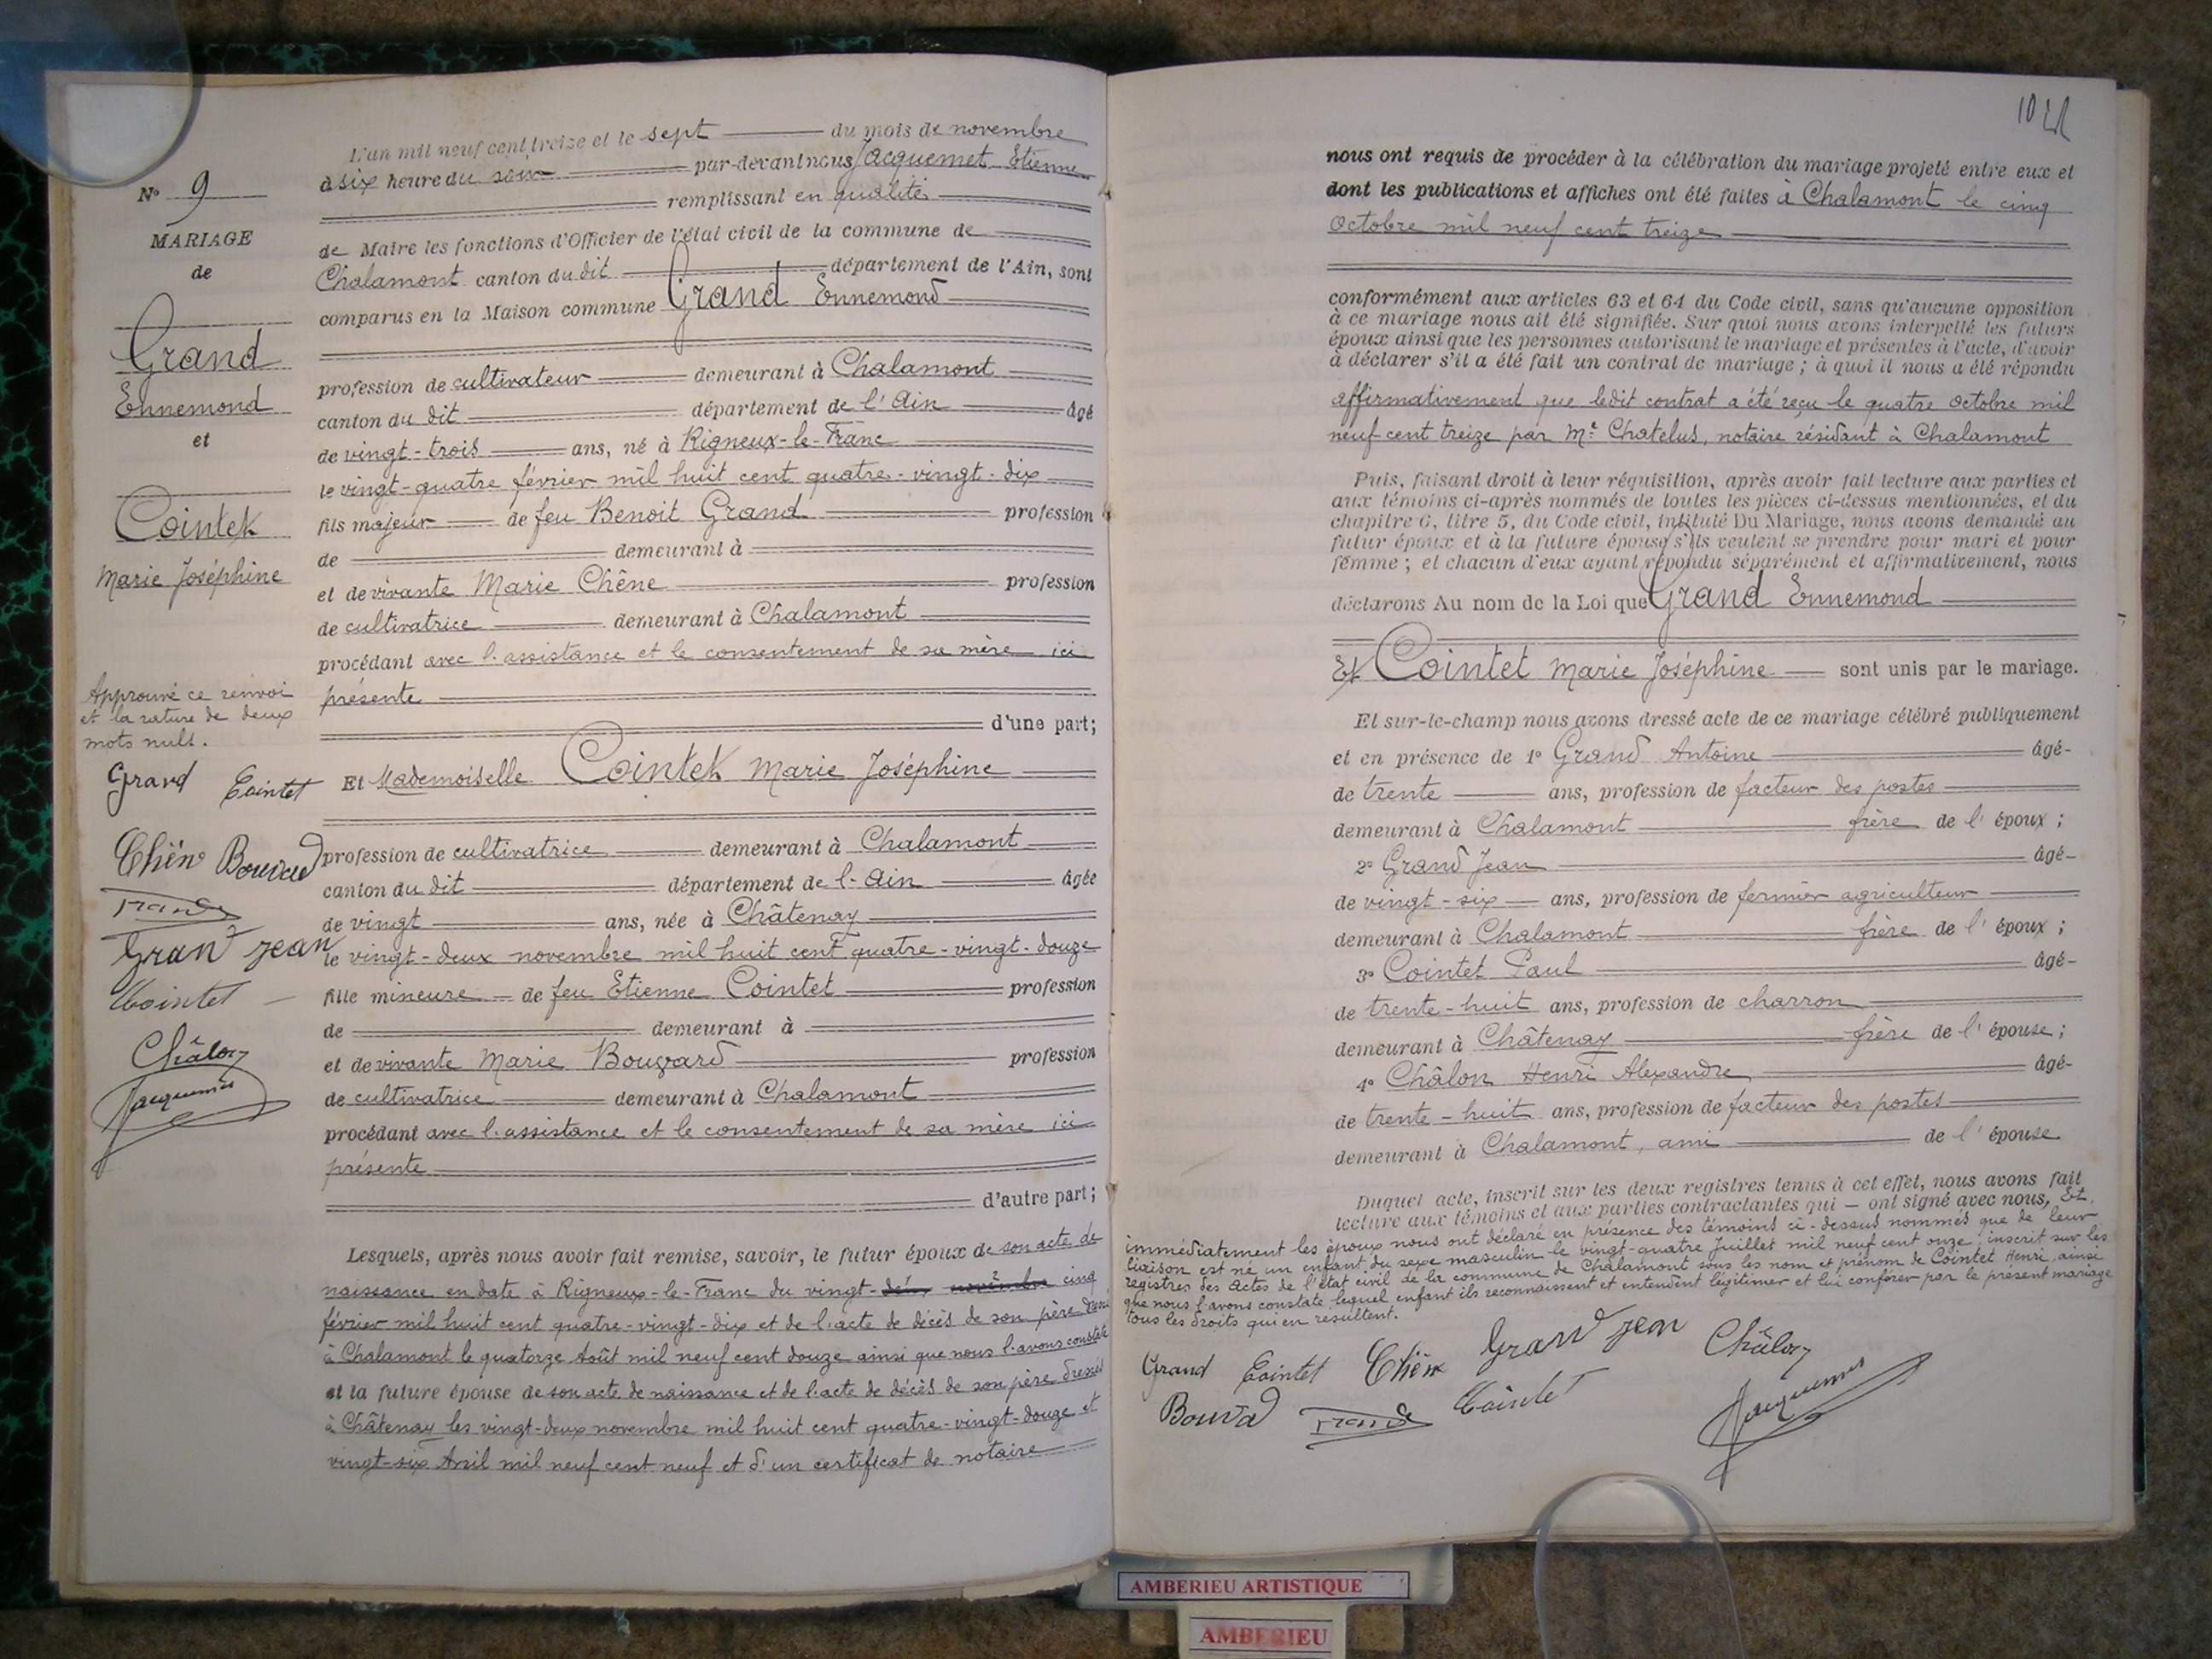 L'an mil neuf cent treize et le sept du mois de novembre
à six heure du soir par-devant nous Jacquemet Etienne
remplissant en qualité
de Maire les fonctions d'Officier de l'état civil de la commune de
Chalamont canton du dit département de l'Ain, sont
comparus en la Maison commune Grand Ennemond
profession de cultivateur demeurant à Chalamont
canton du dit département de l'Ain âgé
de vingt-trois ans, né à Rigneux-le-Franc
le vingt-quatre février mil huit cent quatre-vingt-dix
fils majeur de feu Benoit Grand profession
de demeurant à
et de vivante Marie Chêne profession
de cultivatrice demeurant à Chalamont
procédant avec l'assistance et le consentement de sa mère ici
présente
d'une part;
Et Mademoiselle Cointet Marie Joséphine
profession de cultivatrice demeurant à Chalamont
canton du dit département de l'Ain âgée
de vingt ans, née à Châtenay
le vingt-deux novembre mil huit cent quatre-vingt-douze
fille mineure de feu Etienne Cointet profession
de demeurant à
et de vivante Marie Bouvard profession
de cultivatrice demeurant à Chalamont
procédant avec l'assistance et le consentement de sa mère ici
présente
d'autre part;
Lesquels, après nous avoir fait remise, savoir, le futur époux de son acte de
naissance en date à Rigneux-le-Franc du vingt- cinq
février mil huit cent quatre-vingt-dix et de l'acte de décès de son père dressé
à Chalamont le quatorze Août mil neuf cent douze ainsi que nous l'avons constaté
et la future épouse de son acte de naissance et de l'acte de décès de son père dressés
à Châtenay les vingt-deux novembre mil huit cent quatre-vingt-douze et
vingt-six Avril mil neuf cent neuf et d'un certificat de notaire
N° 9
MARIAGE
de
Grand
Ennemond
et
Cointet
Marie Joséphine
Approuvé ce renvoi
et la rature de deux
mots nuls.
Grand Cointet
Chêne Bouvard
Grand
Grand Jean
Cointet
Châlon
Jacquemet
nous ont requis de procéder à la célébration du mariage projeté entre eux et
dont les publications et affiches ont été faites à Chalamont le cinq
Octobre mil neuf cent treize
conformément aux articles 63 et 64 du Code civil, sans qu'aucune opposition
à ce mariage nous ait été signifiée. Sur quoi nous avons interpellé les futurs
époux ainsi que les personnes autorisant le mariage et présentes à l'acte, d'avoir
à déclarer s'il a été fait un contrat de mariage ; à quoi il nous a été répondu
affirmativement que ledit contrat a été reçu le quatre Octobre mil
neuf cent treize par Me Chatelus, notaire résidant à Chalamont
Puis, faisant droit à leur réquisition, après avoir fait lecture aux parties et
aux témoins ci-après nommés de toutes les pièces ci-dessus mentionnées, et du
chapitre 6, titre 5, du Code civil, intitulé Du Mariage, nous avons demandé au
futur époux et à la future épouse s'ils veulent se prendre pour mari et pour
femme ; et chacun d'eux ayant répondu séparément et affirmativement, nous
déclarons Au nom de la Loi que Grand Ennemond
Et Cointet Marie Joséphine sont unis par le mariage.
Et sur-le-champ nous avons dressé acte de ce mariage célébré publiquement
et en présence de 1° Grand Antoine âgé-
de trente ans, profession de facteur des postes
demeurant à Chalamont frère de l'époux ;
2° Grand Jean âgé-
de vingt-six ans, profession de fermier agriculteur
demeurant à Chalamont frère de l'époux ;
3° Cointet Paul âgé-
de trente-huit ans, profession de charron
demeurant à Châtenay frère de l'épouse ;
4° Châlon Henri Alexandre âgé-
de trente-huit ans, profession de facteur des postes
demeurant à Chalamont, ami de l'épouse
Duquel acte, inscrit sur les deux registres tenus à cet effet, nous avons fait
lecture aux témoins et aux parties contractantes qui — ont signé avec nous, Et
immédiatement les époux nous ont déclaré en présence des témoins ci-dessus nommés que de leur
liaison est né un enfant du sexe masculin le vingt-quatre Juillet mil neuf cent onze inscrit sur les
registres des actes de l'état civil de la commune de Chalamont sous les nom et prénom de Cointet Henri ainsi
que nous l'avons constaté, lequel enfant ils reconnaissent et entendent légitimer et lui conférer par le présent mariage
tous les droits qui en résultent.
Grand Cointet Chêne Grand Jean Châlon
Bouvard Grand Cointet Jacquemet
AMBERIEU ARTISTIQUE
AMBERIEU